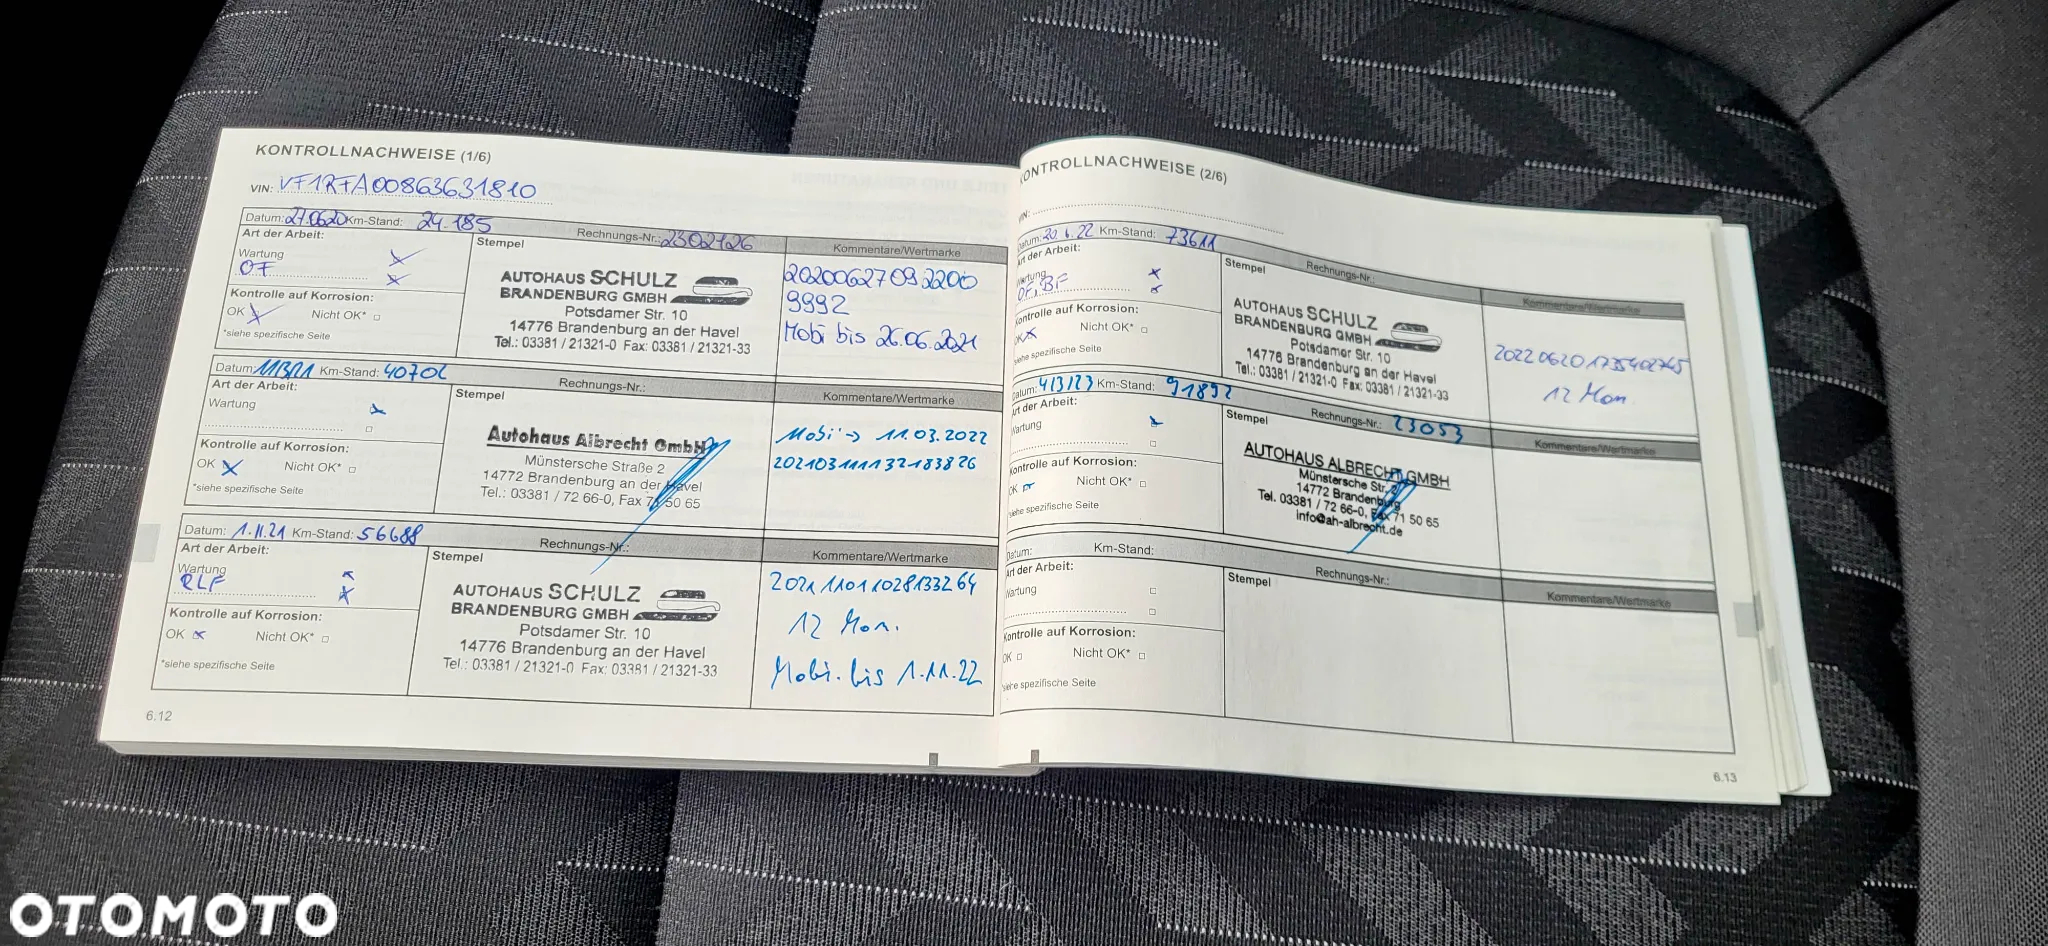 KONTROLLNACHWEISE (1/6)
VIN: VF1RFA00863631810
Datum: 27.06.20 Km-Stand: 24.185
Art der Arbeit:
Wartung
OF
Kontrolle auf Korrosion:
OK Nicht OK*
*siehe spezifische Seite
Stempel
Rechnungs-Nr.: 2302426
AUTOHAUS SCHULZ
BRANDENBURG GMBH
Potsdamer Str. 10
14776 Brandenburg an der Havel
Tel.: 03381 / 21321-0 Fax: 03381 / 21321-33
Kommentare/Wertmarke
20200627092200
9992
Mobi bis 26.06.2021
Datum: 11321 Km-Stand: 40702
Art der Arbeit:
Wartung
Kontrolle auf Korrosion:
OK Nicht OK*
*siehe spezifische Seite
Stempel
Rechnungs-Nr.:
Autohaus Albrecht GmbH
Münstersche Straße 2
14772 Brandenburg an der Havel
Tel.: 03381 / 72 66-0, Fax 71 50 65
Kommentare/Wertmarke
Mobi -> 11.03.2022
2021031111321 83826
Datum: 1.11.21 Km-Stand: 56688
Art der Arbeit:
Wartung
RLF
Kontrolle auf Korrosion:
OK Nicht OK*
*siehe spezifische Seite
Stempel
Rechnungs-Nr.:
AUTOHAUS SCHULZ
BRANDENBURG GMBH
Potsdamer Str. 10
14776 Brandenburg an der Havel
Tel.: 03381 / 21321-0 Fax: 03381 / 21321-33
Kommentare/Wertmarke
20211101102813 3264
12 Mon.
Mobi. bis 1.11.22
6.12
KONTROLLNACHWEISE (2/6)
VIN:
Datum: 20.6.22 Km-Stand: 73611
Art der Arbeit:
Wartung
OF, BF
Kontrolle auf Korrosion:
OK Nicht OK*
*siehe spezifische Seite
Stempel
Rechnungs-Nr.:
AUTOHAUS SCHULZ
BRANDENBURG GMBH
Potsdamer Str. 10
14776 Brandenburg an der Havel
Tel.: 03381 / 21321-0 Fax: 03381 / 21321-33
Kommentare/Wertmarke
202206201735402745
12 Mon
Datum: 4/3/23 Km-Stand: 91892
Art der Arbeit:
Wartung
Kontrolle auf Korrosion:
OK Nicht OK*
*siehe spezifische Seite
Stempel
Rechnungs-Nr.: 23053
AUTOHAUS ALBRECHT GMBH
Münstersche Str. 2
14772 Brandenburg
Tel. 03381 / 72 66-0, Fax 71 50 65
info@ah-albrecht.de
Kommentare/Wertmarke
Datum: Km-Stand:
Art der Arbeit:
Wartung
Kontrolle auf Korrosion:
OK Nicht OK*
*siehe spezifische Seite
Stempel
Rechnungs-Nr.:
Kommentare/Wertmarke
6.13
OTOMOTO